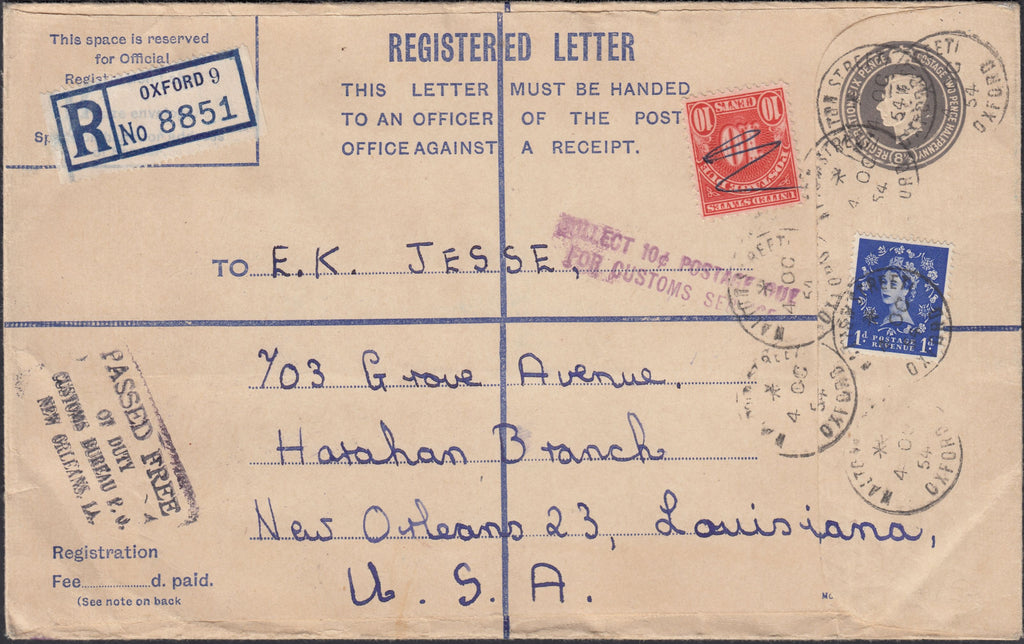 This space is reserved
for Official
OXFORD 9
R No 8851
REGISTERED LETTER
THIS LETTER MUST BE HANDED
TO AN OFFICER OF THE POST
OFFICE AGAINST A RECEIPT.
10 CENTS 10
10
POSTAGE DUE
UNITED STATES
REGISTRATION SIX PENCE POSTAGE TWO PENCE HALFPENNY
COLLECT 10¢ POSTAGE DUE
FOR CUSTOMS
TO E.K. JESSE,
703 Grove Avenue.
Harahan Branch
New Orleans 23, Louisiana,
U. S. A.
1d POSTAGE REVENUE 1d
PASSED FREE
OF DUTY
CUSTOMS BUREAU P. O.
NEW ORLEANS, LA.
4 OC
54
OXFORD
Registration
Fee d. paid.
(See note on back